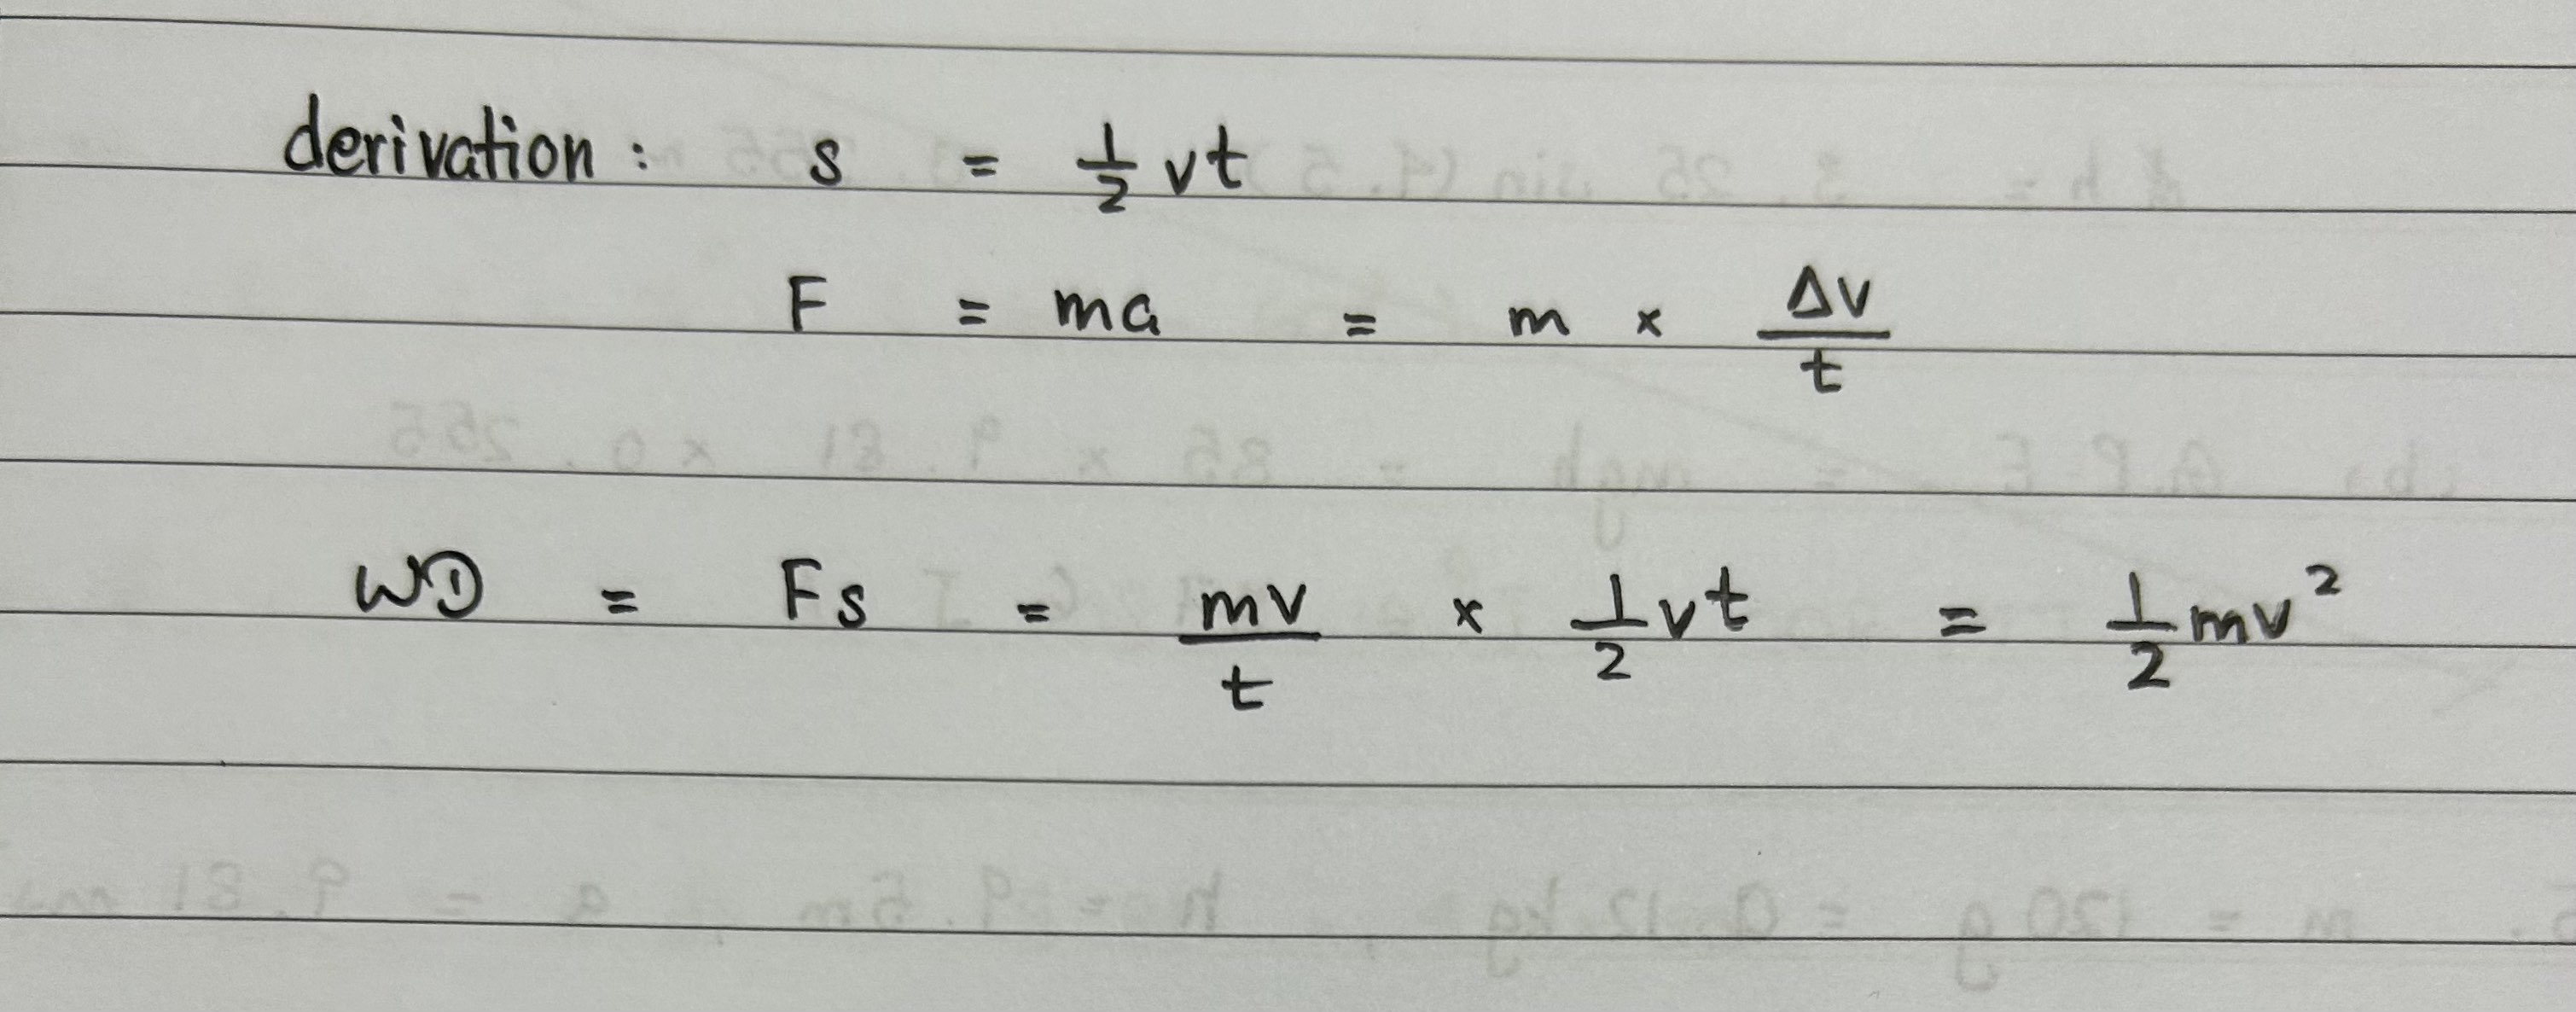 derivation : s = 1/2 vt
F = ma = m × Δv/t
WD = Fs = mv/t × 1/2 vt = 1/2 mv²